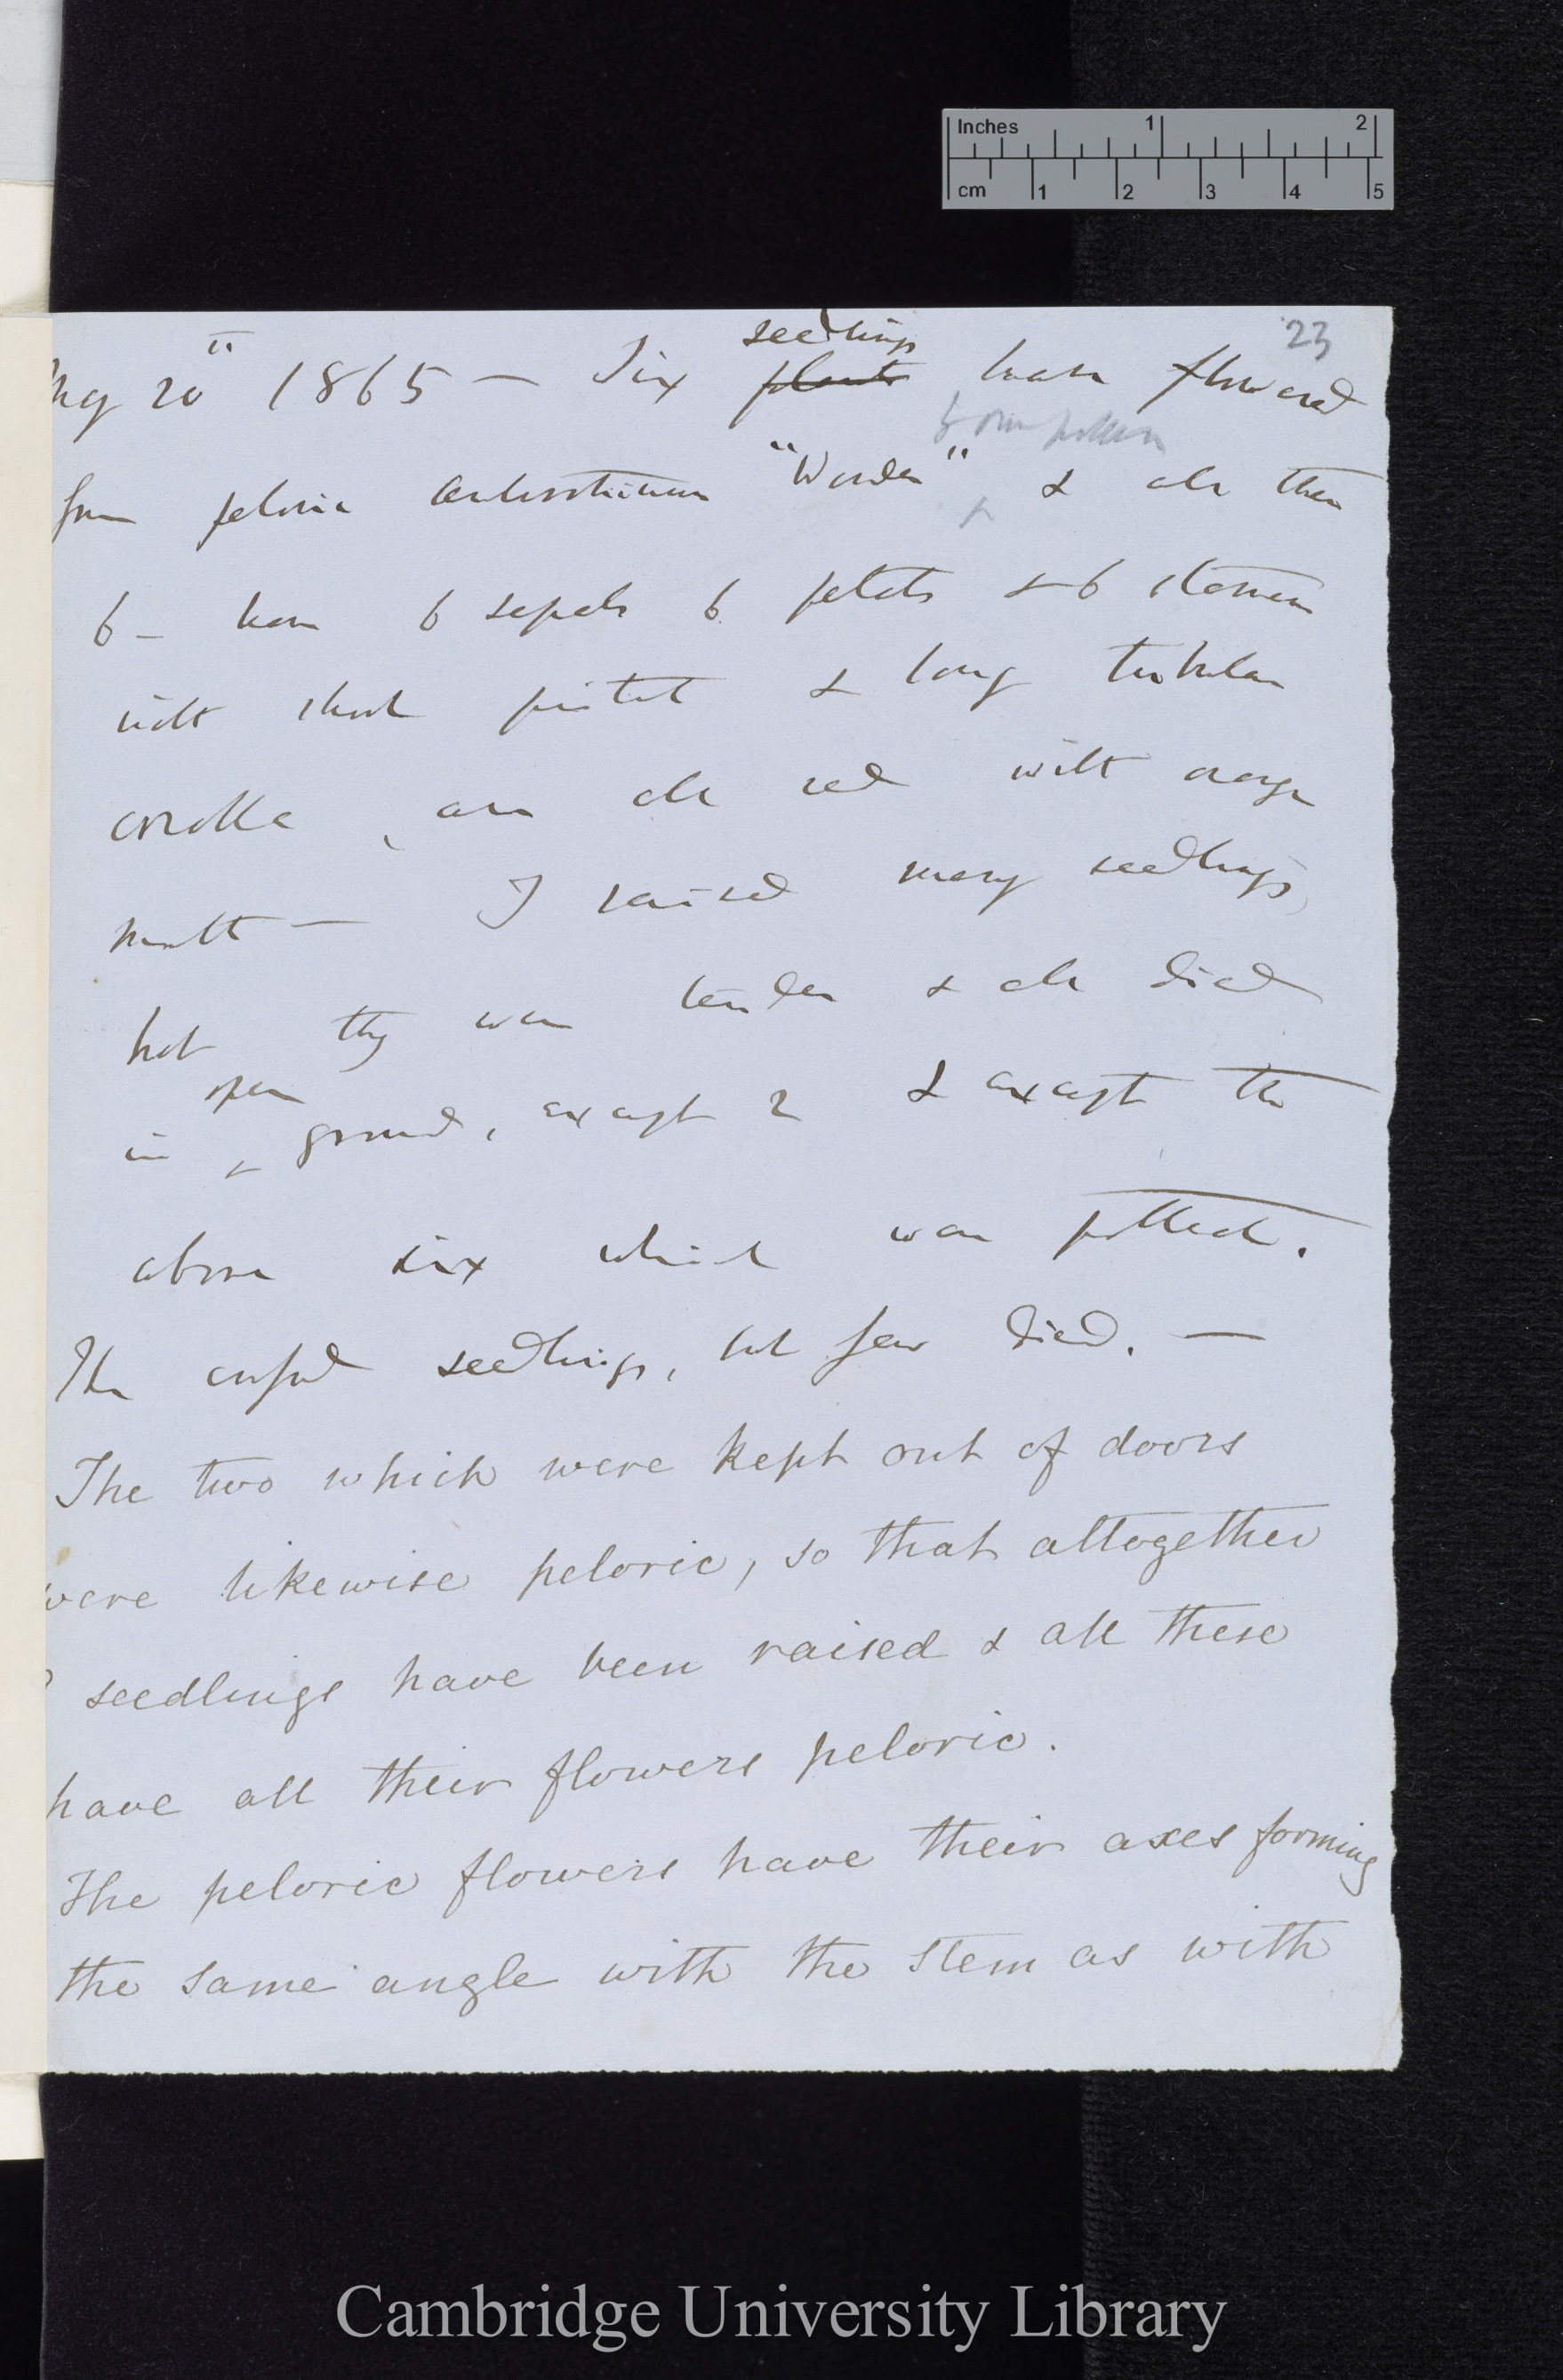 Inches 1 2
cm 1 2 3 4 5
23
seedlings
20th 1865 — Six plants have flowered
own pollen
from peloric antirrhinum "Wonder" & all these
6 — have 6 sepals 6 petals & 6 stamens
with short pistil & long tubular
corolla, are all red with orange
mouth — I raised many seedlings,
but they were tender & all died
open
in ground, except 2 & except the
above six which were potted.
The crossed seedlings, but few died. —
The two which were kept out of doors
were likewise peloric, so that altogether
seedlings have been raised & all these
have all their flowers peloric.
The peloric flowers have their axes forming
the same angle with the stem as with
Cambridge University Library